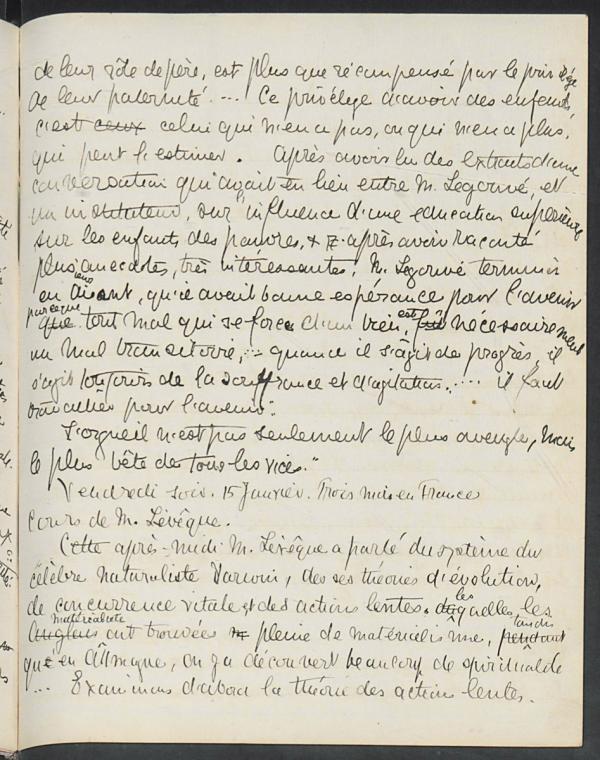 de leur rôle de père, est plus que récompensé par le privilége
de leur paternité. ... Ce privélege d'avoir des enfants,
c'est ceux celui qui n'en a pas, ou qui n'en a plus,
qui peut l'estimer. Après avoir lu des extraits d'une
conversation qui avait en lieu entre M. Legouvé, et
un instituteur, sur l'influence d'une education supérieure
sur les enfants des pauvres, & après avoir raconté
plusi anecdotes, très intéressantes, M. Legouvé termina
en nous disant, qu'il avait bonne espérance pour l'avenir
parceque que tout mal qui se force d'un bien, est fut nécessairement
un mal transitoire, quand il s'agit de progrès, il
s'agit toujours de la souffrance et d'agitation. .... il faut
travailler pour l'avenir".
L'orgueil n'est pas seulement le plus aveugle, mais
le plus bête de tous les vices."
Vendredi soir. 15 Janvier. Trois mois en France
Cours de M. Lévêque.
Cette après-midi M. Levêque a parlé du système du
célèbre naturaliste Darwin, des ses théories d'évolution,
de concurrence vitale et des actions lentes. les quelles, les
materialiste Anglais ont trouvées pleine de matérielisme, tandis pendant
que en Allmagne, on y a découvert beaucoup de spiritualité
... Examinons d'abord la théorie des action lentes.